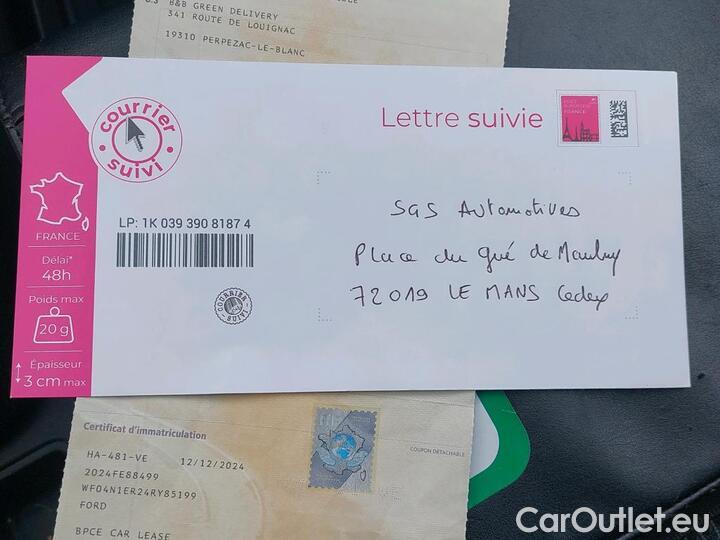 B&B GREEN DELIVERY
341 ROUTE DE LOUIGNAC
19310 PERPEZAC-LE-BLANC
courrier suivi
Lettre suivie
FRANCE
LP: 1K 039 390 8187 4
SGS Automotives
Place du gué de Maulny
72019 LE MANS Cedex
FRANCE
Délai*
48h
Poids max
20 g
Épaisseur
3 cm max
COURRIER SUIVI
Certificat d'immatriculation
COUPON DÉTACHABLE
HA-481-VE 12/12/2024
2024FE88499
WF04N1ER24RY85199
FORD
BPCE CAR LEASE
CarOutlet.eu